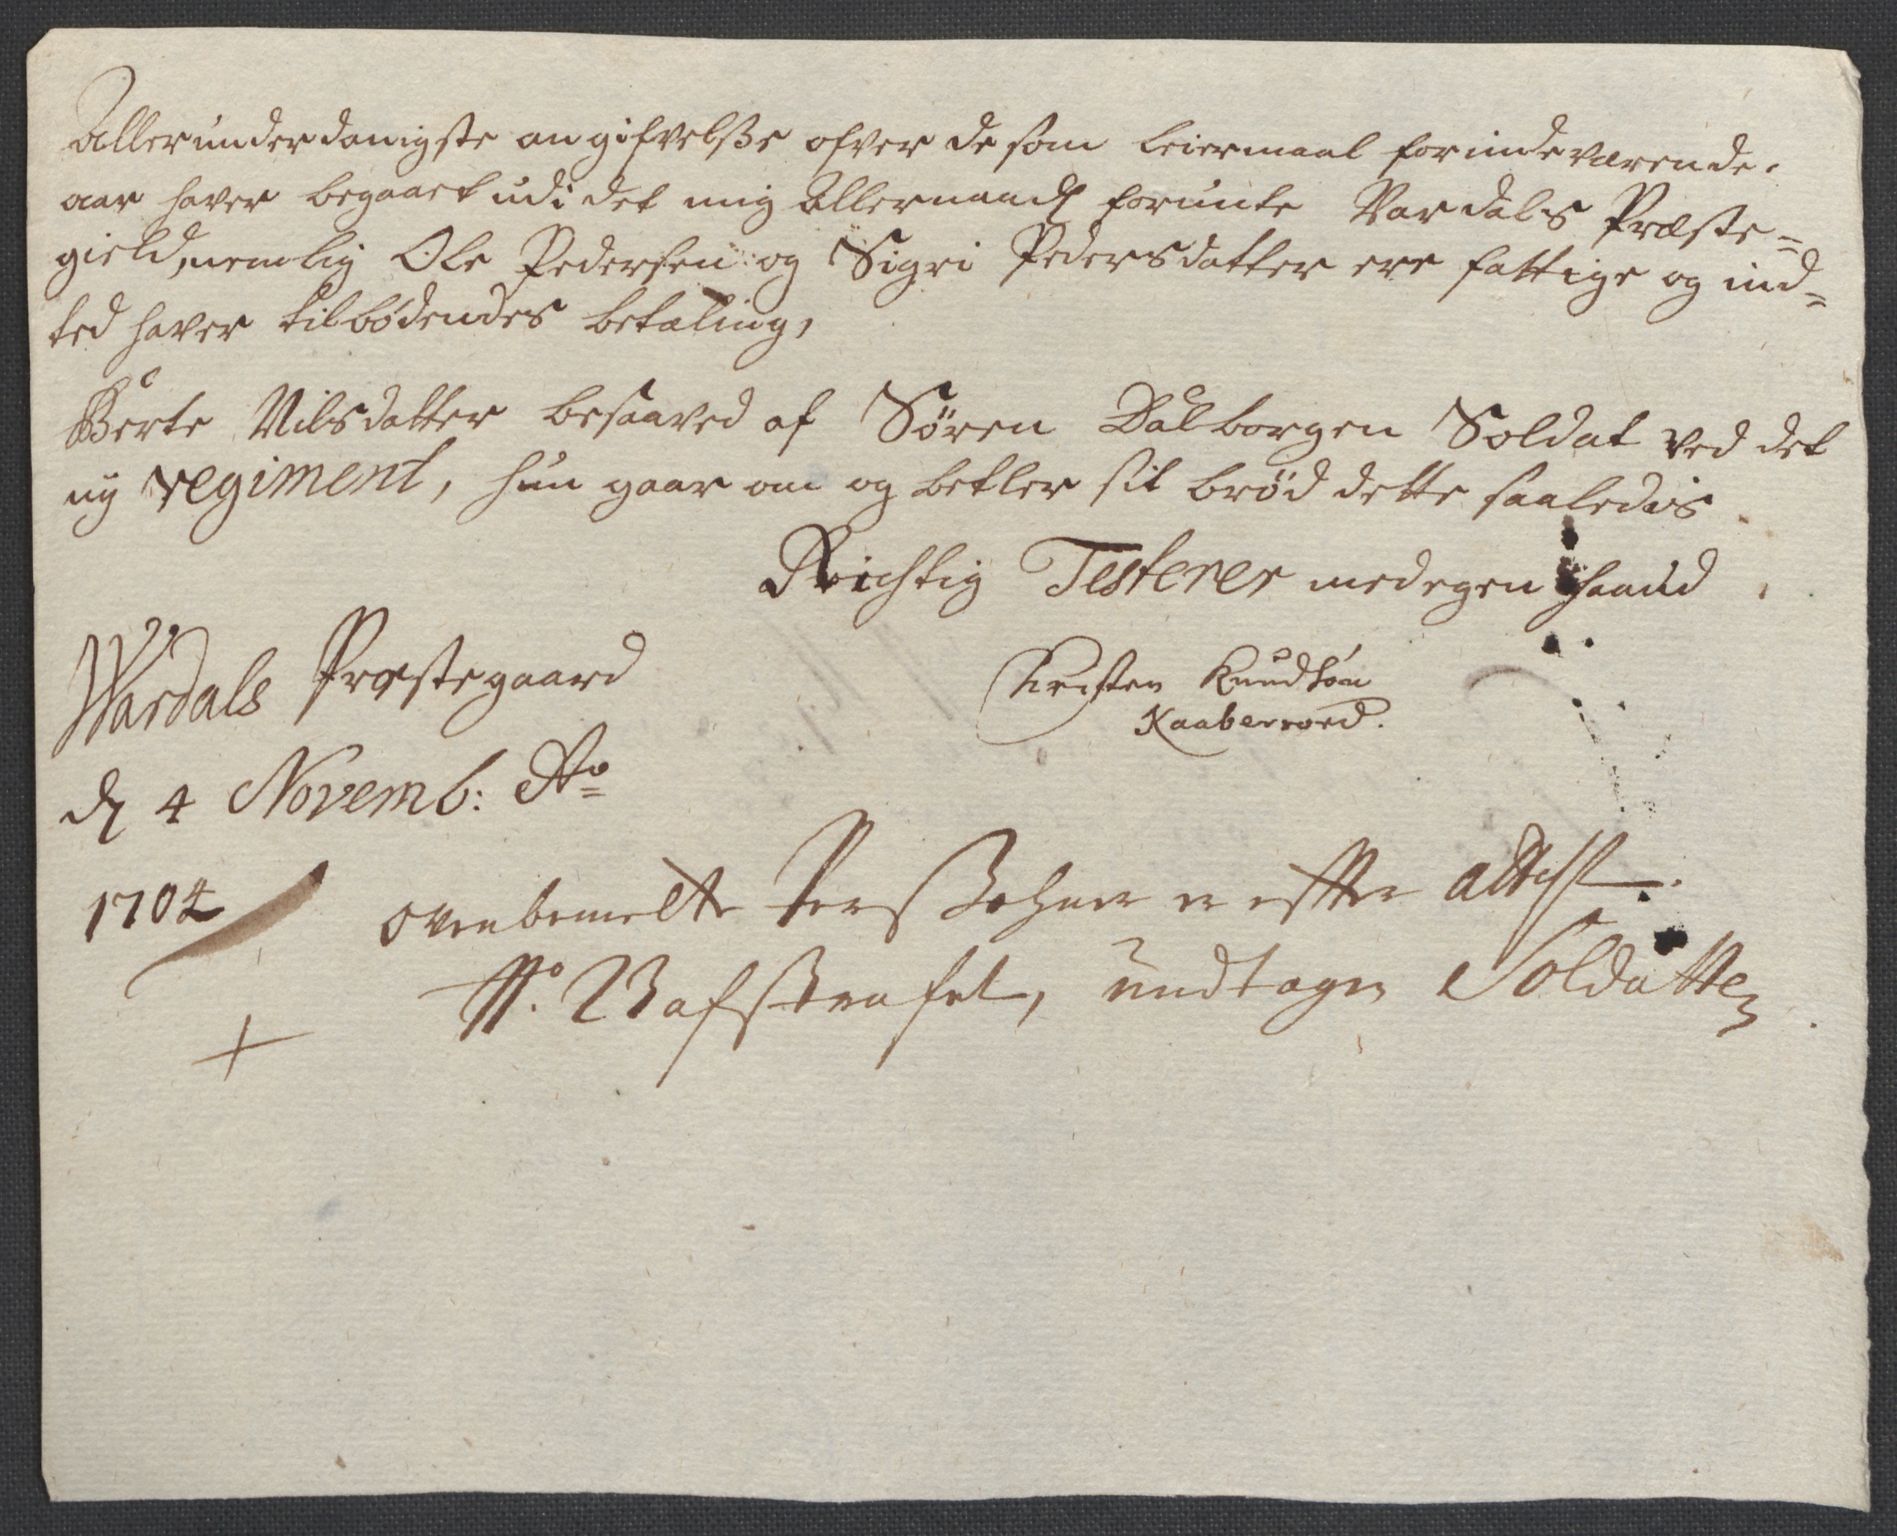 Allerunderdanigste angifvelsse ofver de som leiermaal forindeværende
aar haver begaaet udi det mig Allernaad forunte Vardals Præste=
gield, nemlig Ole Pedersen og Sigri Pedersdatter ere fattige og ind=
ted haver tilbødendes betaling,
Berte Nilsdatter besaaved af Sören Dalborgen Soldat ved det
ny regiment, hun gaar om og betler sit brød dette saaledis
Richtig Testerer med egen haand
Wardals Præstegaard
Christen Knudsøn
Kaaberroed.
d 4 Novemb: Ao
1704
ovenbemelte Perssohner er effter
undtagen Soldatten